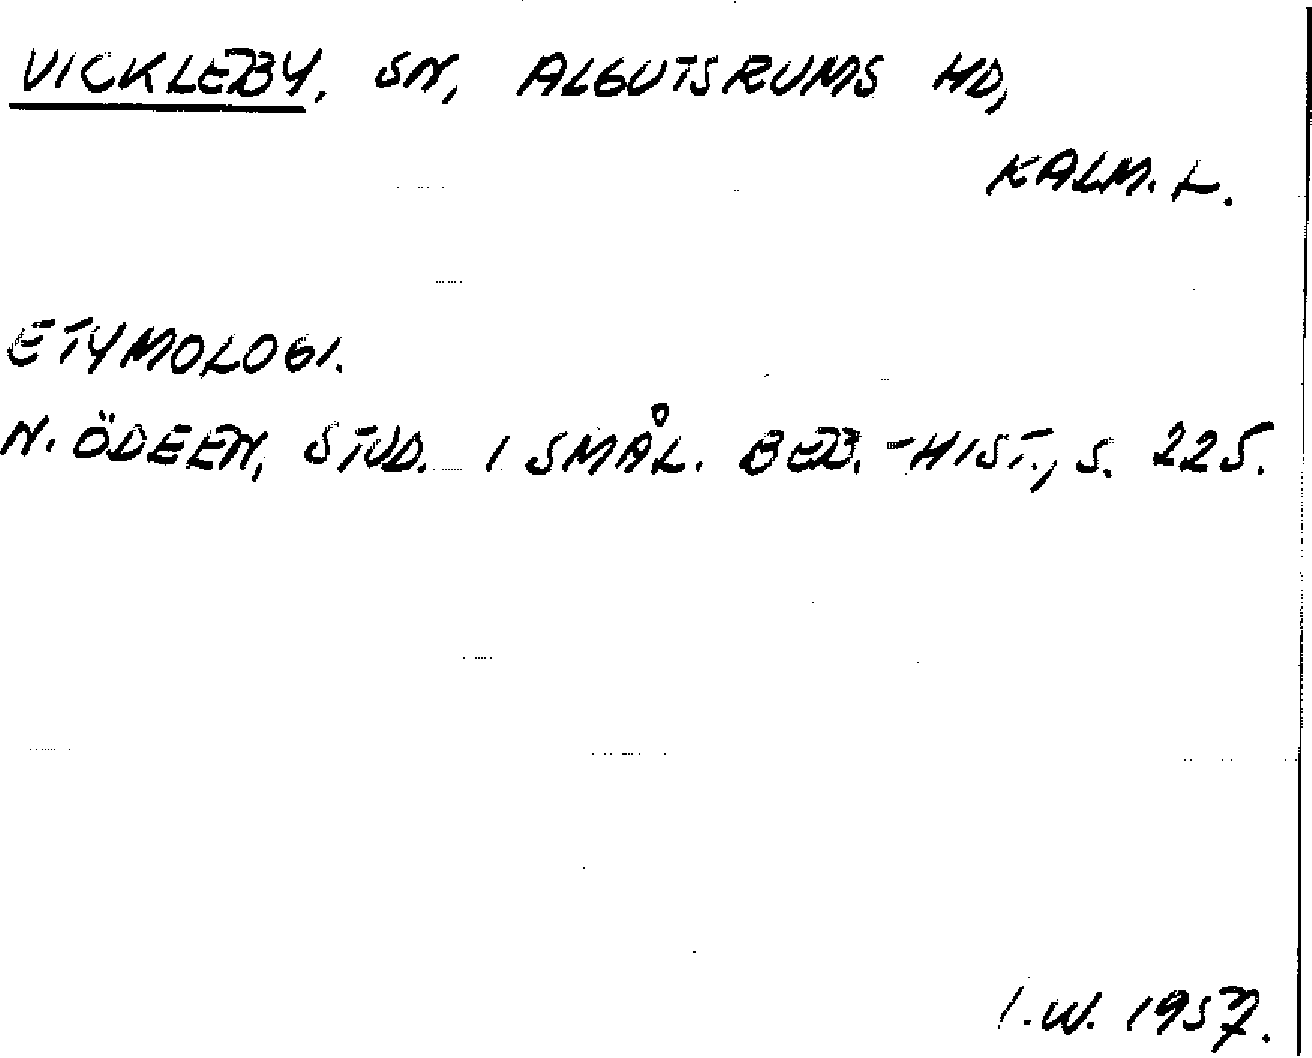 VICKLEBY, SN, ALGUTSRUMS HD,
KALM. L.
ETYMOLOGI.
N. ÖDEEN, STUD. I SMÅL. BEB.-HIST., S. 225.
I.W. 1957.